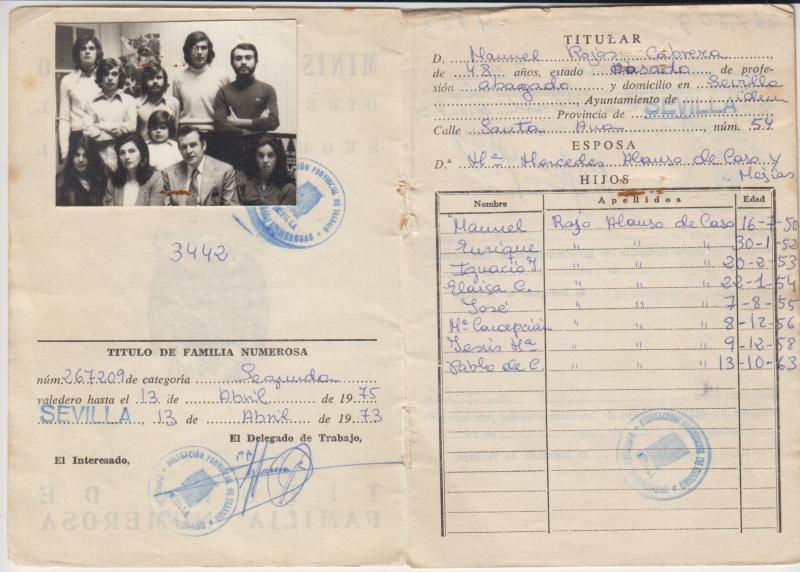 3442
TITULO DE FAMILIA NUMEROSA
núm. 267209 de categoría Segunda
valedero hasta el 13 de Abril de 1975
SEVILLA, 13 de Abril de 1973
El Delegado de Trabajo,
El Interesado,
DELEGACIÓN PROVINCIAL DE TRABAJO
SEVILLA
TITULAR
D. Manuel Rojas Cabrera
de 48 años, estado casado de profe-
sión abogado y domicilio en Sevilla
Ayuntamiento de idem
Provincia de SEVILLA
Calle Santa Ana, núm. 54
ESPOSA
D.ª Mª Mercedes Alonso de Caso y
Mejías
HIJOS
Nombre Apellidos Edad
Manuel Rojo Alonso de Caso 16-7-50
Enrique " " 30-1-52
Ignacio J. " " 20-2-53
Eloisa C. " " 22-1-54
José " " 7-8-55
Mª Concepción " " 8-12-56
Jesús Mª " " 9-12-58
Pablo de C. " " 13-10-63